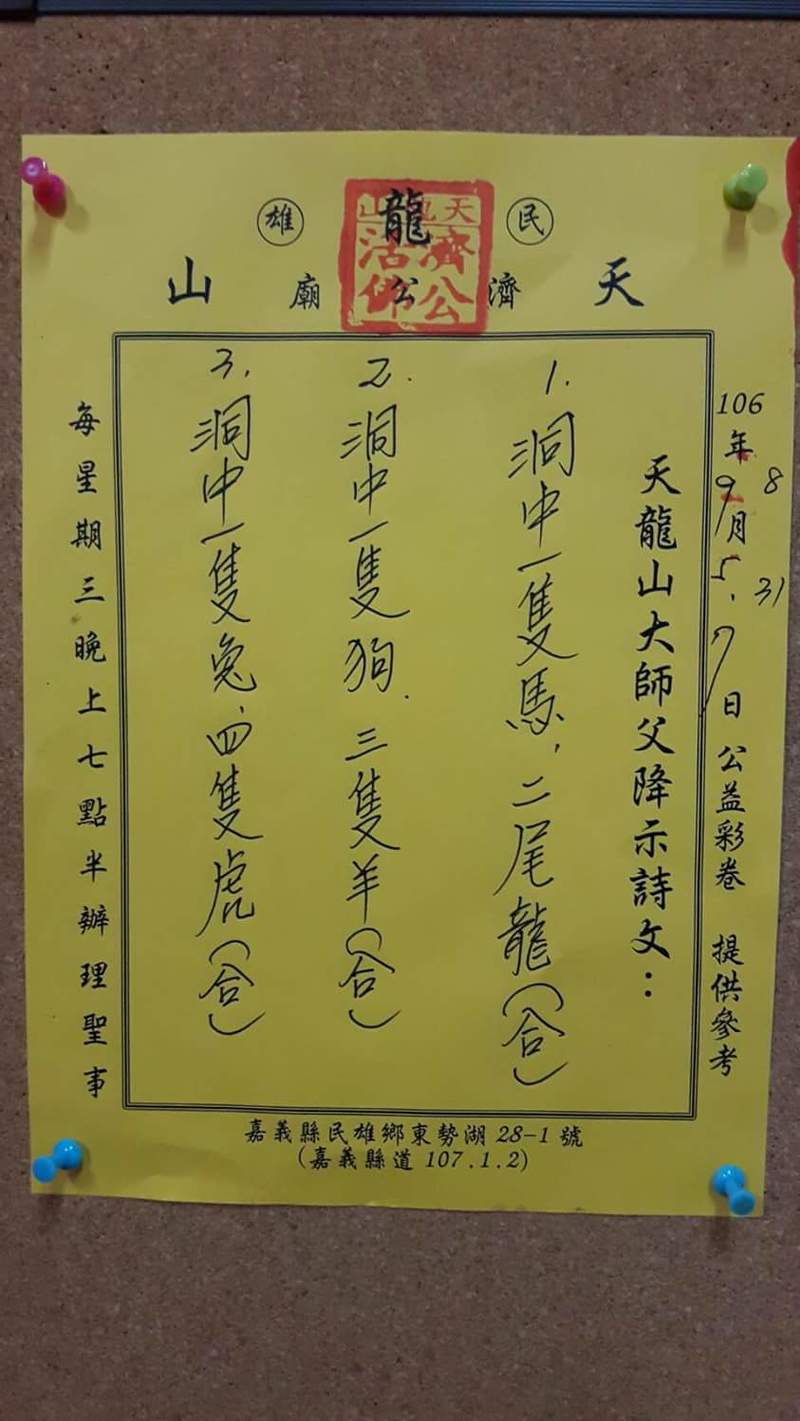 民 龍 雄
天 濟 公 廟 山
天龍山
濟公
活佛
106年9月5.7日公益彩卷 提供參考
8 31
天龍山大師父降示詩文：
1. 洞中一隻馬，二尾龍(合)
2. 洞中一隻狗.三隻羊(合)
3. 洞中一隻兔、四隻虎(合)
每星期三晚上七點半辦理聖事
嘉義縣民雄鄉東勢湖 28-1 號
(嘉義縣道 107.1.2)